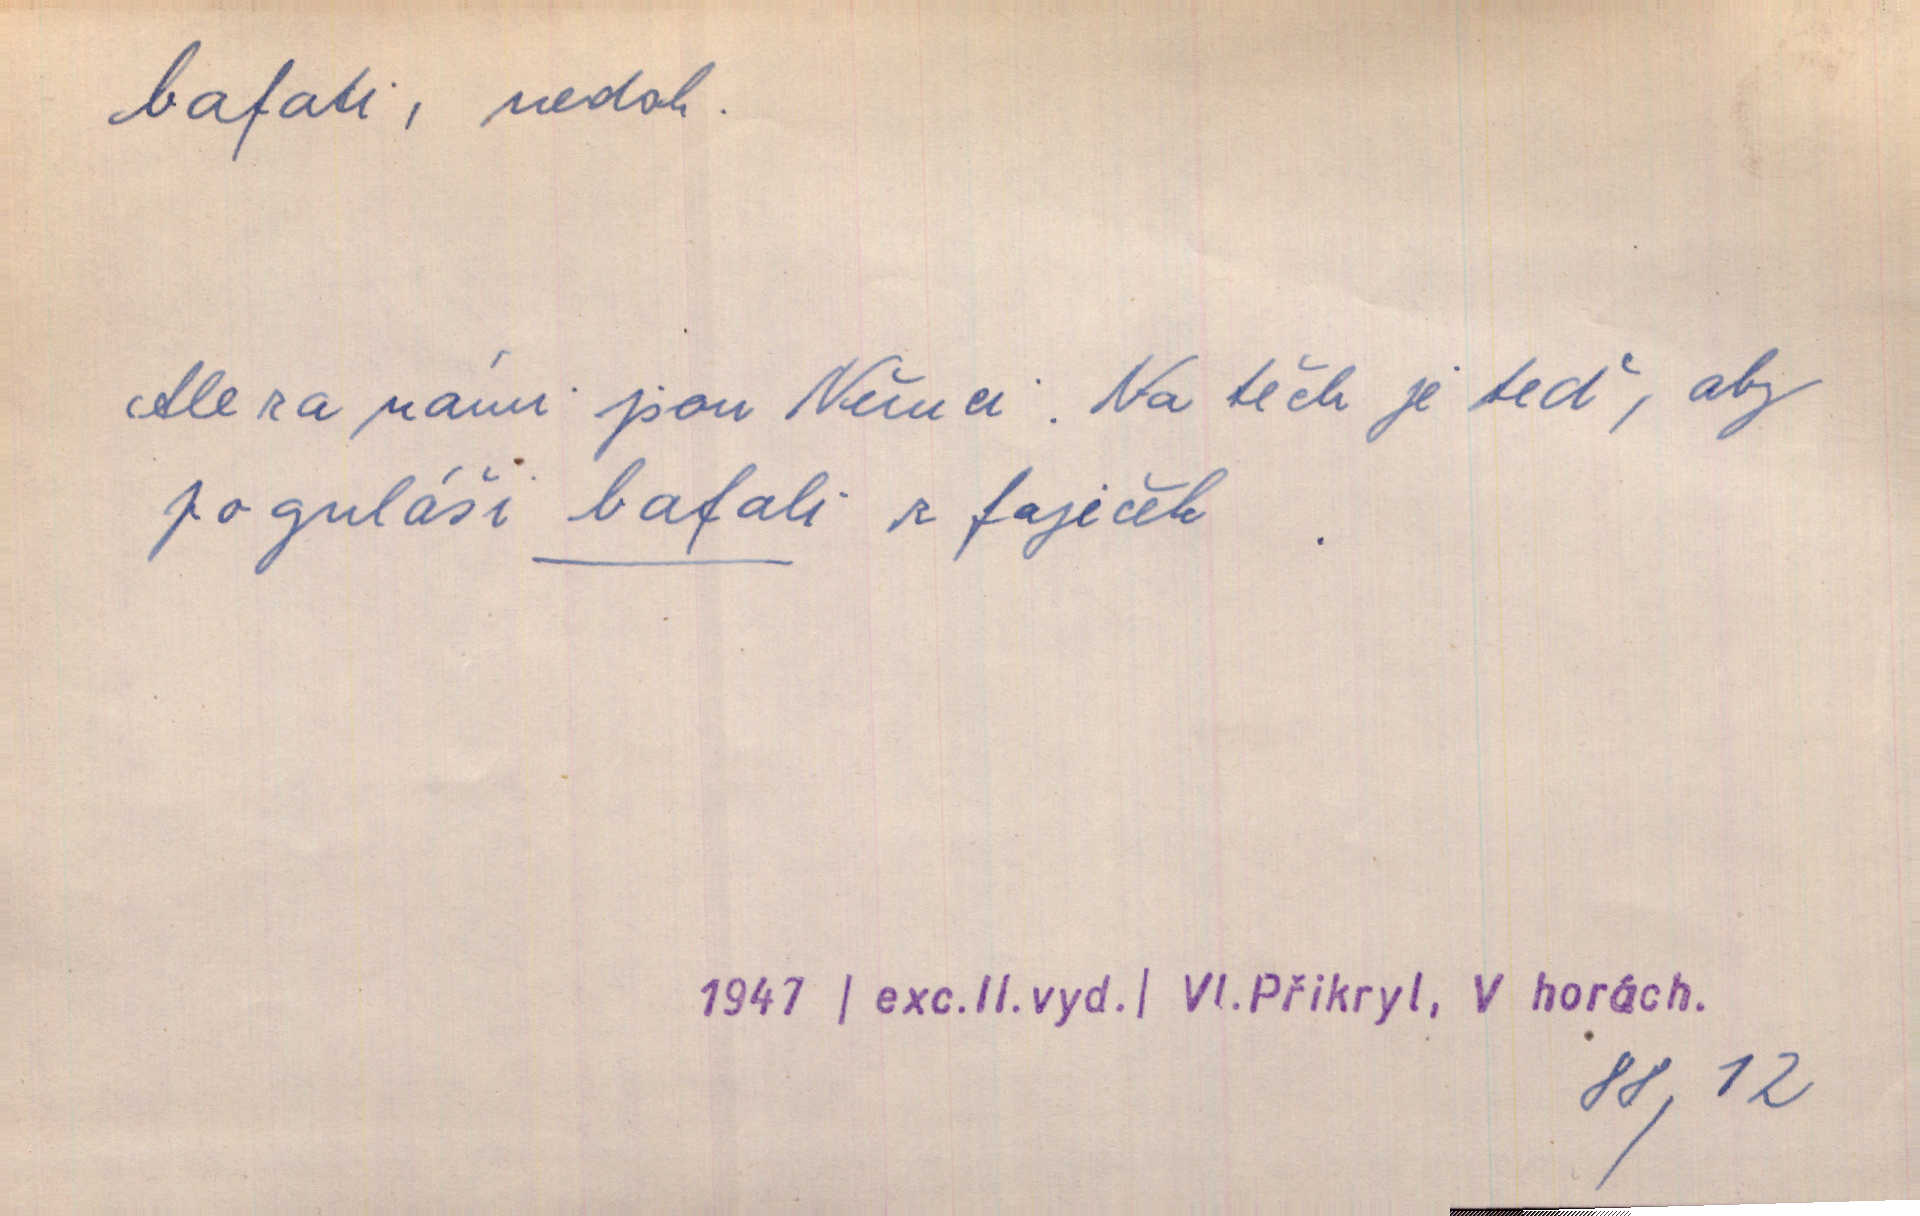 bafati, nedok.
Ale za námi jsou Němci. Na těch je teď, aby
po guláši bafali z fajiček.
1947 | exc.II.vyd.| Vl.Přikryl, V horách.
88, 12